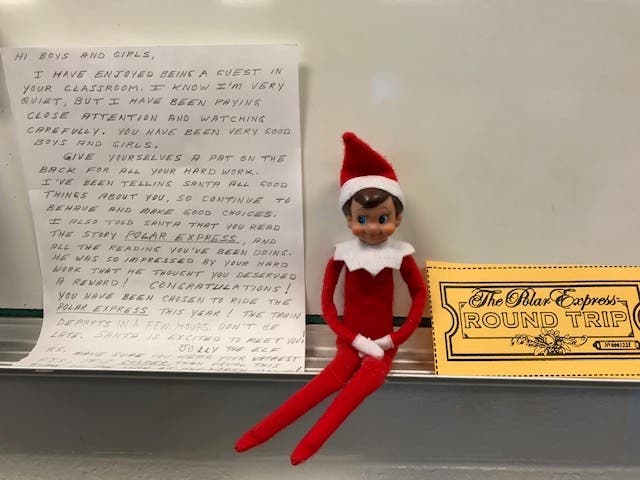 HI BOYS AND GIRLS,
I HAVE ENJOYED BEING A GUEST IN
YOUR CLASSROOM. I KNOW I'M VERY
QUIET, BUT I HAVE BEEN PAYING
CLOSE ATTENTION AND WATCHING
CAREFULLY. YOU HAVE BEEN VERY GOOD
BOYS AND GIRLS.
GIVE YOURSELVES A PAT ON THE
BACK FOR ALL YOUR HARD WORK.
I'VE BEEN TELLING SANTA ALL GOOD
THINGS ABOUT YOU, SO CONTINUE TO
BEHAVE AND MAKE GOOD CHOICES.
I ALSO TOLD SANTA THAT YOU READ
THE STORY POLAR EXPRESS, AND
ALL THE READING YOU'VE BEEN DOING.
HE WAS SO IMPRESSED BY YOUR HARD
WORK THAT HE THOUGHT YOU DESERVED
A REWARD! CONGRATULATIONS!
YOU HAVE BEEN CHOSEN TO RIDE THE
POLAR EXPRESS THIS YEAR! THE TRAIN
DEPARTS IN A FEW HOURS. DON'T BE
LATE. SANTA IS EXCITED TO MEET YOU!
JOLLY THE ELF
MAKE SURE YOU WEAR YOUR WARMEST
COLDER THAN USUAL THIS
The Polar Express
ROUND TRIP